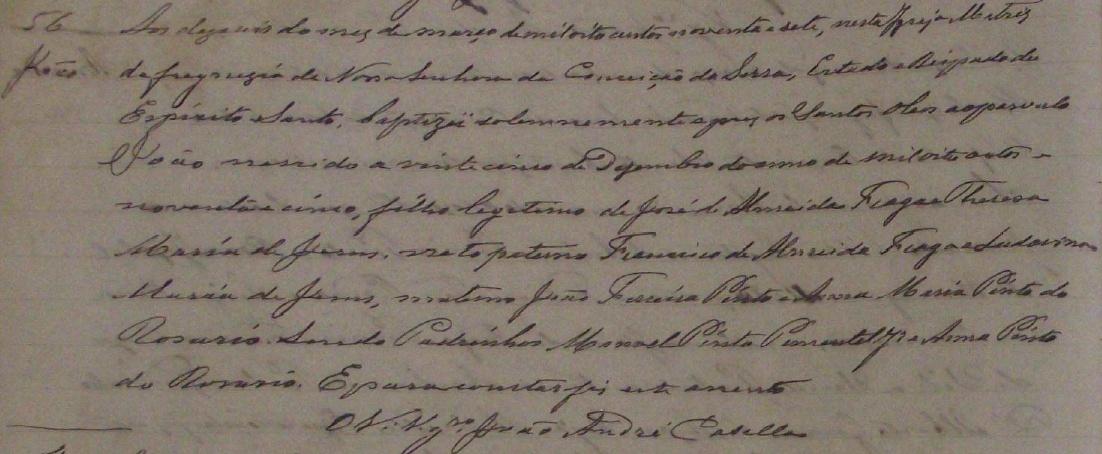 56 Aos dezeseis do mez de março de mil oito centos noventa e sete, nesta Igreja Matriz
João da freguezia de Nossa Senhora da Conceição da Serra, Estado e Bispado do
Espirito Santo, baptizei solemnemente e puz os Santos Oleos ao parvulo
João nascido a vinte cinco de Dezembro do anno de mil oito centos e
noventa e cinco, filho legitimo de José de Almeida Fraga e Theresa
Maria de Jesus, neto paterno Francisco de Almeida Fraga e Ludovina
Maria de Jesus, materno João Ferreira Pinto e Anna Maria Pinto do
Rosario. Sendo Padrinhos Manoel Pinto Pimentel e Anna Pinto
do Rosario. E para constar fiz este assento
O V. João André Casella